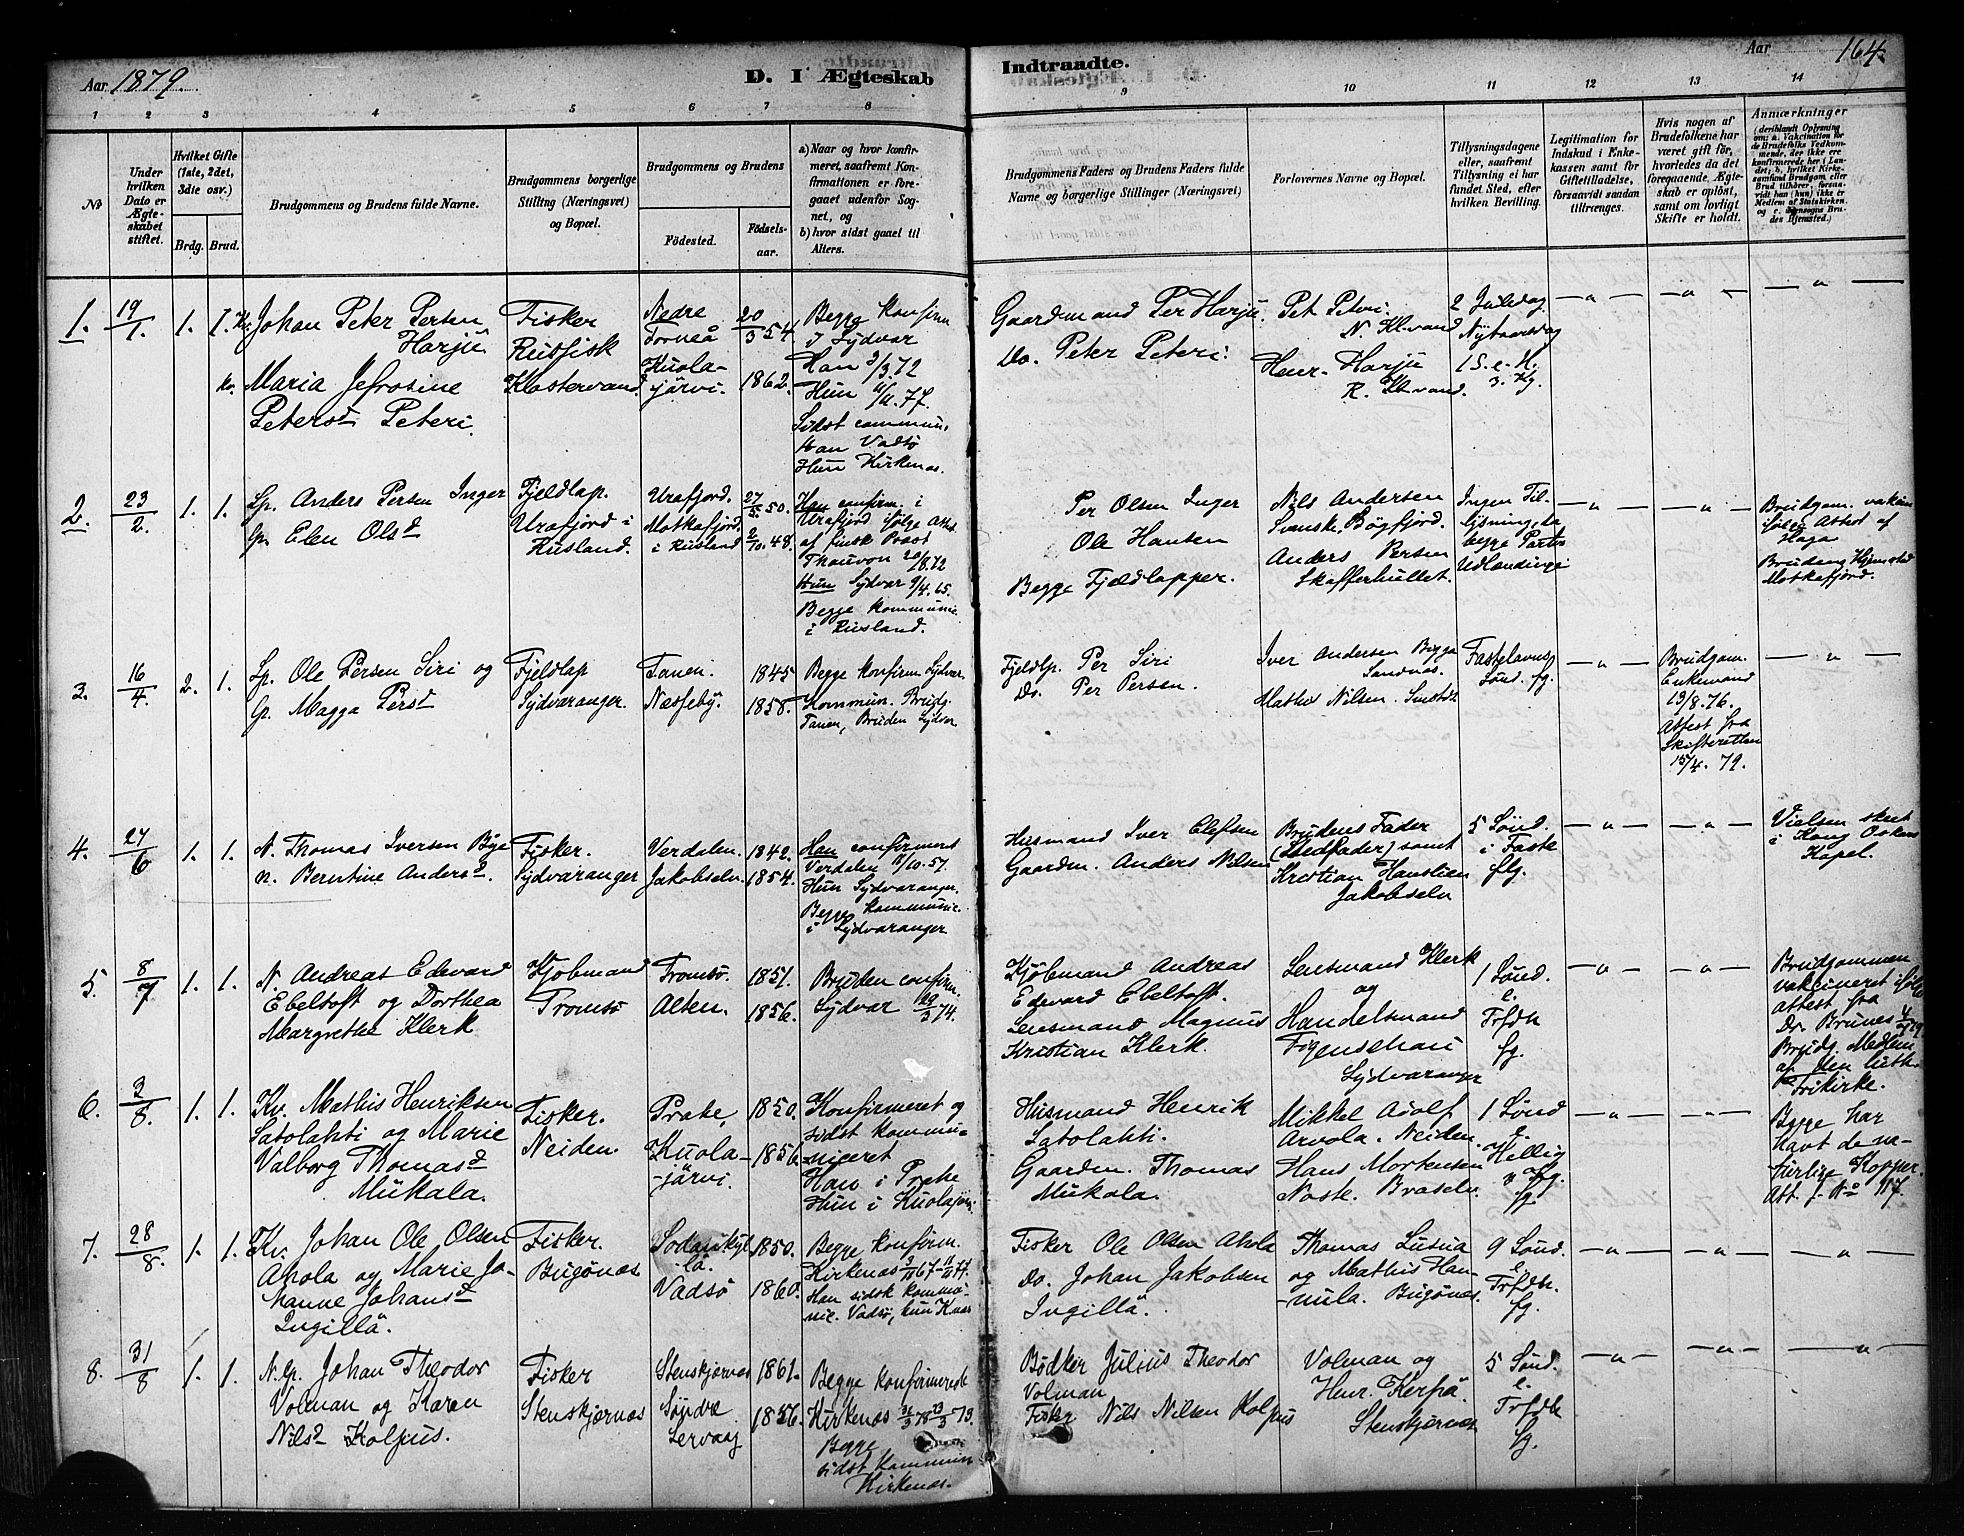 Aar 1879.
D. I Ægteskab
Indtraadte.
Aar
164.
1 2 3 4 5 6 7 8 9 10 11 12 13 14
Nº
Under hvilken Dato er Ægteskabet stiftet.
Hvilket Gifte (1ste, 2det, 3die osv.)
Brdg. Brud.
Brudgommens og Brudens fulde Navne.
Brudgommens borgerlige Stilling (Næringsvei) og Bopæl.
Brudgommens og Brudens
Födested.
Födsels-aar.
a) Naar og hvor konfirmeret, saafremt Konfirmationen er foregaaet udenfor Sognet, og
b) hvor sidst gaaet til Alters.
Brudgommens Faders og Brudens Faders fulde Navne og borgerlige Stillinger (Næringsvei)
Forlovernes Navne og Bopæl.
Tillysningsdagene eller, saafremt Tillysning ei har fundet Sted, efter hvilken Bevilling.
Legitimation for Indskud i Enkekassen samt for Giftetilladelse, forsaavidt saadan tiltrænges.
Hvis nogen af Brudefolkene har været gift för, hvorledes da det foregaaende Ægteskab er oplöst, samt om lovligt Skifte er holdt.
Anmærkninger
1. 19/1 1. 1.
Kv. Johan Peter Persen
Harju
Kv. Maria Jefrosine
Petersd Peteri.
Fisker
Rusfisk
Klostervand.
Nedre
Torneå
Kuola-
järvi.
20/3 54.
1862.
Begge Konfirm
i Sydvar
Han 3/3. 72
Hun 11/11. 77.
Sidst commun.
Han Vadsö
Hun Kirkenæs.
Gaardmand Per Harju.
Do. Peter Peteri.
Pet Peteri.
N. Kl.vand
Henr. Harju
R. Kl.vand.
2 Juledag
Nytaarsdag
1 S. e. H.
3. Kg.
— " — — " — — " —
2. 23/2 1. 1.
Lp. Anders Persen Inger
Lp. Elen Olsd
Fjeldlap.
Urafjord i
Rusland.
Urafjord.
Motkafjord.
i Rusland
27/5 50.
2/10. 48.
Han confirm. i
Urafjord ifölge Attest
af finsk Præst
Thauvon 20/8. 72
Hun Sydvar 9/4. 65.
Begge kommunic.
i Rusland.
Per Olsen Inger
Ole Hansen
Begge Fjeldlapper.
Nils Andersen
Svanske. Bögfjord.
Anders Persen
Skafferhullet.
Ingen Til-
lysning, da
begge Parter
Udlændinge
— " — — " —
Brudgom. vakcin
ifölge Attest af
Haga
Brudens Hjemsted
Motkafjord.
3. 16/4 2. 1.
Lp. Ole Persen Siri og
Lp. Magga Persd
Fjeldlap
Sydvaranger.
Tanen.
Næsseby.
1845
1858.
Begge Konfirm Sydvar.
Kommun. Brudg.
Tanen, Bruden Sydvar
Fjeldlp. Per Siri
Do. Per Persen.
Iver Andersen Bigga
Sandnæs.
Mathis Nilsen
Fastelavns
Sönd. fg.
— " —
Brudgom.
Enkemand
19/8. 76.
Attest fra
Skifteretten
15/4. 79.
— " —
4. 27/6 1. 1.
N. Thomas Iversen Bye
N. Berntine Andersd.
Fisker.
Sydvaranger
Verdalen.
Jakobselv.
1842.
1854.
Han confirmeret
Verdalen 18/10. 57.
Hun Sydvaranger.
Begge kommunic.
i Sydvaranger
Husmand Iver Elefsen
Gaardm. Anders Nilsen
Brudens Fader
(Stedfader) samt
Kristian Hansnien
Jakobselv
5 Sönd.
i Faste
flg.
— " — — " —
Vielsen skeet
i Kong Oskars
Kapel.
5. 8/7 1. 1.
N. Andreas Edevard
Ebeltoft og Dorthea
Margrethe Klerk
Kjöbmand
Tromsö
Tromsö.
Alten.
1851.
1856.
Bruden confirm.
Sydvar 29/3 74.
Kjöbmand Andreas
Edevard Ebeltoft.
Lensmand Magnus
Kristian Klerk.
Lensmand Klerk
og
Handelsmand
Figenschau
Sydvaranger
1 Sönd.
e.
Trfdh
fg.
— " — — " —
Brudgommen
vakcineret ifölge
attest fra
Dr. Brunes
Brudg. Medlem
af den luth.
Frikirke.
6. 3/8. 1. 1.
Kv. Mathis Henriksen
Satolahti og Marie
Valborg Thomasd
Mukala.
Fisker.
Neiden.
Prahe,
Kuola-
-järvi.
1850.
1856
Konfirmeret og
sidst kommu-
niceret
Han i Prahe
Hun i Kuolajärvi.
Husmand Henrik
Satolahti.
Gaardm. Thomas
Mukala.
Mikkel Adolf
Arvola. Neiden.
Hans Mortensen
Noste. Braselv.
1 Sönd
e.
Hellig
3 Kg.
fg.
— " — — " —
Begge har
havt de na-
turlige Kopper.
Att. J. Nº 117.
7. 28/8. 1. 1.
Kv. Johan Ole Olsen
Ahola og Marie Jo-
hanne Johansd
Ingillä.
Fisker.
Bugönæs
Sodankyl-
lä.
Vadsö
1850.
1860.
Begge konfirm.
Kirkenæs
Han sidsk kommu-
nic. Vadsö, hun Knæs
Fisker Ole Olsen Ahola
Do. Johan Jakobsen
Ingillä.
Thomas Lusua
og Mathis Han-
-nula. Bugönæs
9 Sönd.
e.
Trfdh.
fg.
— " — — " — — " —
8. 31/8 1. 1.
N. Lp. Johan Theodor
Volman og Karen
Nilsd Kolpus.
Fisker
Stenskjernæs
Stenskjernæs
Söndre
Lervaag
1861.
1856.
Begge konfirmerede
Kirkenæs
Begge
sidst kommun
Kirkenæs.
Bödker Julius Theodor
Volman
Fisker Nils Nilsen Kolpus
Volman og
Henr. Kerpä
Stenskjernæs
5 Sönd.
e.
Trfdh
fg.
— " — — " — — " —